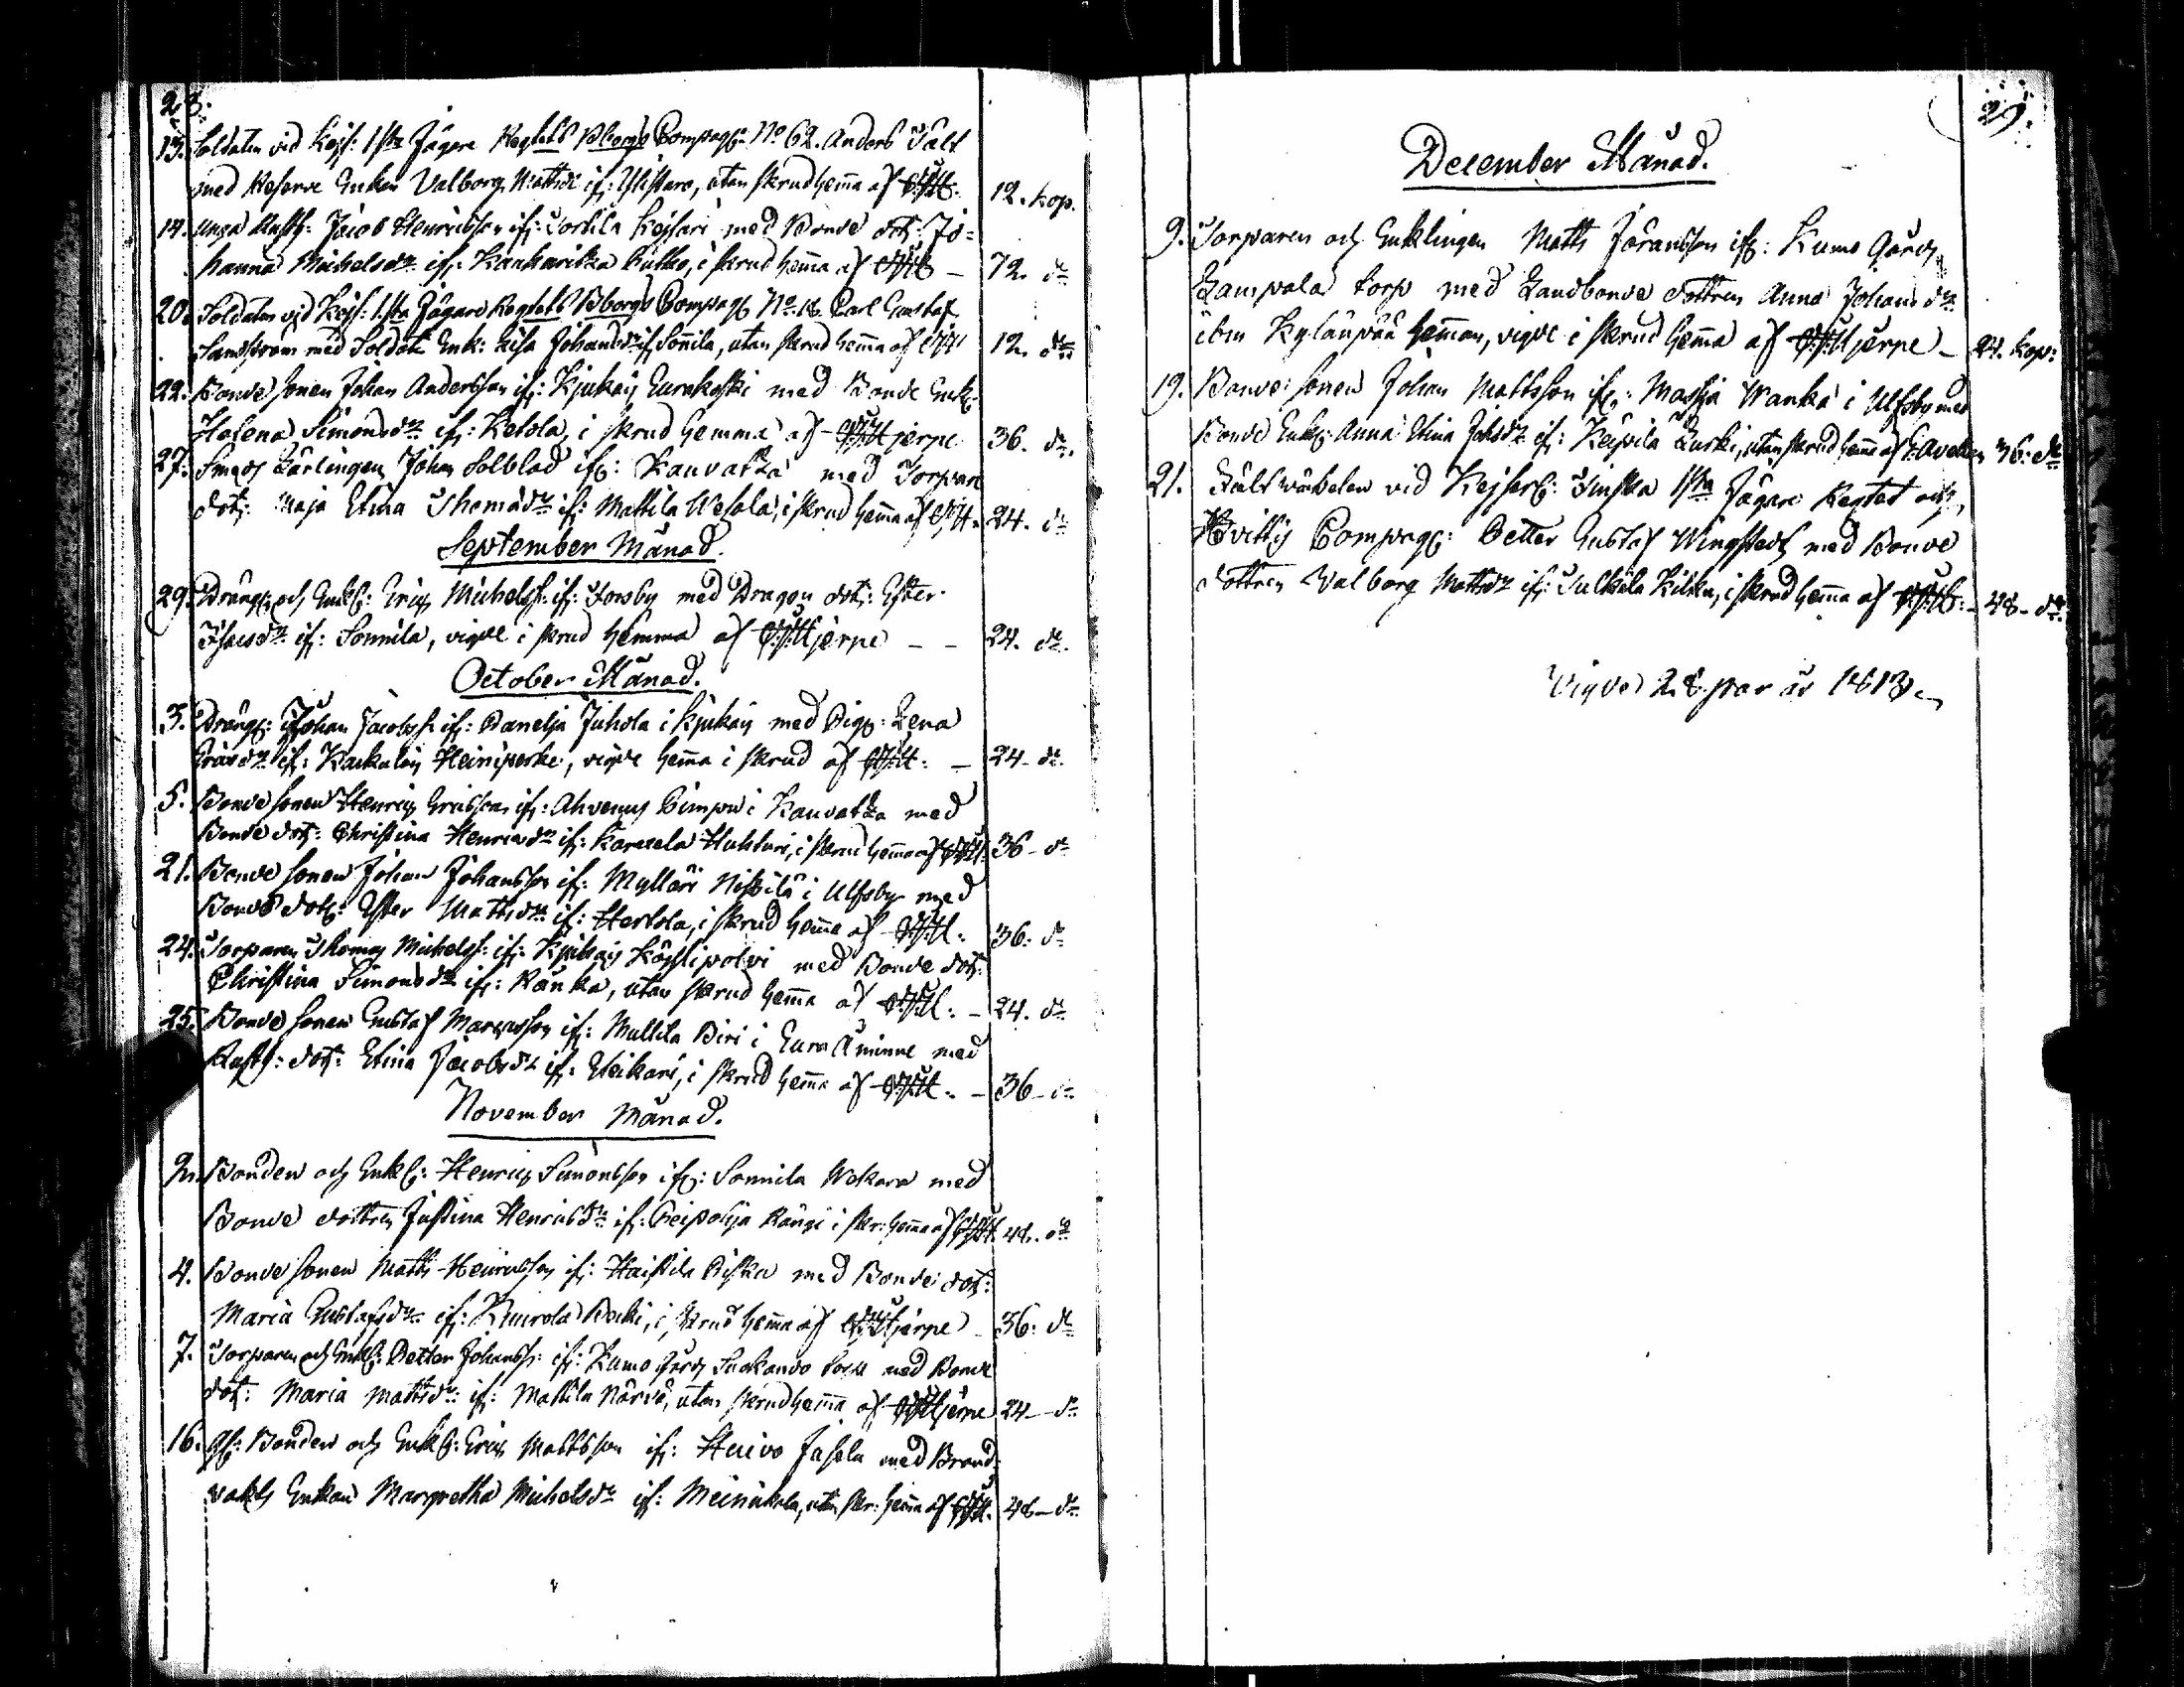 28.
13. Soldaten vid Kejs: 1sta Jägare Regtets Bborgs Compag: No 62. Anders Fält
med Reserve Enkan Valborg Mattsdr if: Ylistaro, utan skrud hema af 12. Kop.
14. unga Rusth: Jacob Henricsson if: Sorkila Kejsari med Bonde dotr: Jo=
hanna Michelsdr if: Kankarizka Pukko, i skrud hema af – 72. dr
20. Soldaten vid Kejs: 1sta Jägare Regtets Bborgs Compag No 18 Carl Gustaf
Sandström med Soldat Enk: Lisa Johansdr if: Sonnila, utan skrud hema af 12. dr
22. Bonde sonen Johan Andersson if: Kjukais Eurakoski med Bonde Enk:
Helena Simonsdr if: Ketola, i skrud hemma af Hjerpe 36. dr.
27. Smeds Lärlingen Johan Solblad if: Kauvatza med Torpare
dotr: Maja Stina Thomædr if: Mattila Wesola, i skrud hema af 24. dr
September Månad.
29. Dräng och Enkl: Eric Michelss: if: Forsby med Dragon dotr: Ester
Isacsdr if: Sonnila, vigde i skrud hemma af Hjerpe – – 24. dr.
October Månad.
3. Dräng: Johan Jacobss: if: Panelja Juhola i Kjukais med Pig: Lena
Ericsdr if: Kaukalais Heiniperke, vigde hema i skrud af – 24– dr.
5. Bonde sonen Henric Ericsson if: Ahvenus Pimpu i Kauvatza med
Bonde dotr: Christina Henricsdr if: Karuela Huhturi, i skrud hema af 36– dr
21. Bonde sonen Johan Johansson if: Mylläri Nikkilä i Ulfsby med
Bonde dotr: Ester Mattsdr if: Hertola, i skrud hema af 36: dr
24. Torparen Thomas Michelss: if: Kjukais Köylipolvi med Bonde dotr:
Christina Simonsdr if: Ränka, utan skrud hema af – 24. dr
25. Bonde sonen Gustaf Marcusson if: Mullila Piri i Eura Åminne med
Rusth: dotr: Stina Jacobsdr if: Heikari, i skrud hema af – 36– dr
November Månad.
2. Bonden och Enkl: Henric Simonsson if: Sonnila Wakara med
Bonde dottren Justina Henricsdr if: Peipohja Rängi i skr: hema af 48. dr
4. Bonde sonen Matts Henricsson if: Haistila Piska med Bonde dotr:
Maria Gustafsdr if: Kuurola Packi, i skrud hema af Hjerpe 36: dr
7. Torparen och Enkl: Petter Johanss: if: Kumo gårds Suokando torp med Bonde
dotr: Maria Mattsdr if: Mattila Närvä, utan skrud hema af Hjerpe 24– dr
16. Bonden och Enkl: Eric Mattsson if: Huivo Jasela med Brand
vakts Enkan Margretha Michelsdr if: Meinikala, utan skr: hema af 48– dr
29.
December Månad.
9. Torparen och Enklingen Matts Göransson if: Kumo Gårds
Lampala torp med Landbonde dottren Anna Johansdr
ibm Kylänpää hemman, vigde i skrud hema af Hjerpe – 24. Kop:
19. Bonde sonen Johan Mattsson if: Masija Wanka i Ulfsby med
Bonde Enk: Anna Stina Johsdr if: Keipila Zurki, utan skrud hema af 36: dr
21. Fältväbelen vid Kejserl: Finska 1sta Jägare Regtet och
Hvittis Compag: Petter Gustaf Wingstedt med Bonde
dottren Valborg Mattsdr if: Tulkkila Kilku, i skrud hema af – 48– dr
Vigde 28 par år 1813.